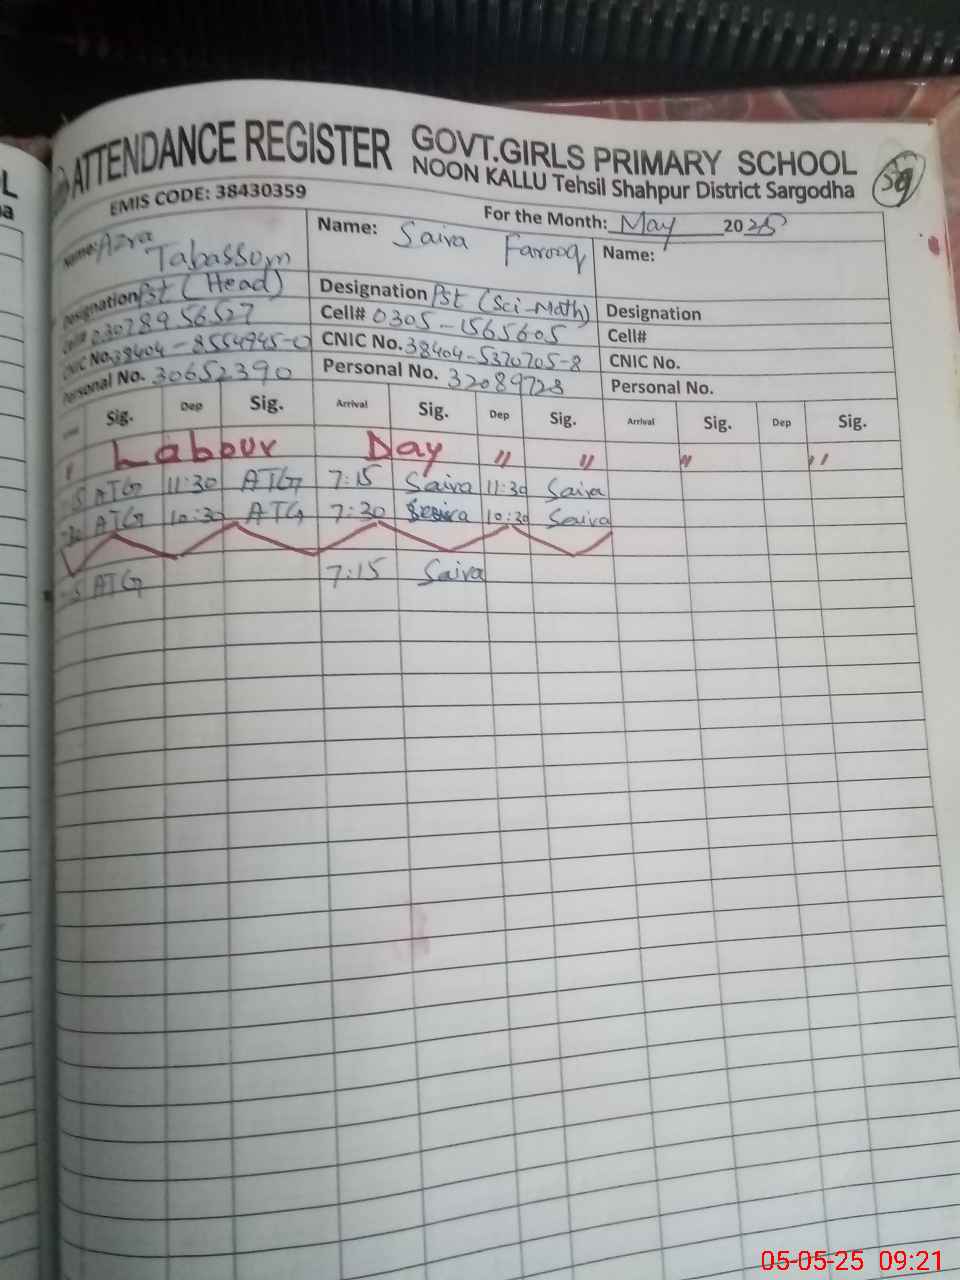 ATTENDANCE REGISTER GOVT.GIRLS PRIMARY SCHOOL
NOON KALLU Tehsil Shahpur District Sargodha
EMIS CODE: 38430359
For the Month: May 2025
Name: Azra Tabassom
Name: Saira Farooq
Name:
Designation Pst (Head)
Designation Pst (Sci-Math)
Designation
Cell# 03078956527
Cell# 0305-1565605
Cell#
CNIC No. 38404-8554945-0
CNIC No. 38404-5370705-8
CNIC No.
Personal No. 30652390
Personal No. 32089723
Personal No.
Sig. Dep Sig. Arrival Sig. Dep Sig. Arrival Sig. Dep Sig.
" Labour Day " " " "
-15 ATG 11:30 ATG 7:15 Saira 11:30 Saira
-30 ATG 10:30 ATG 7:30 Saira 10:30 Saira
-15 ATG 7:15 Saira
05-05-25 09:21